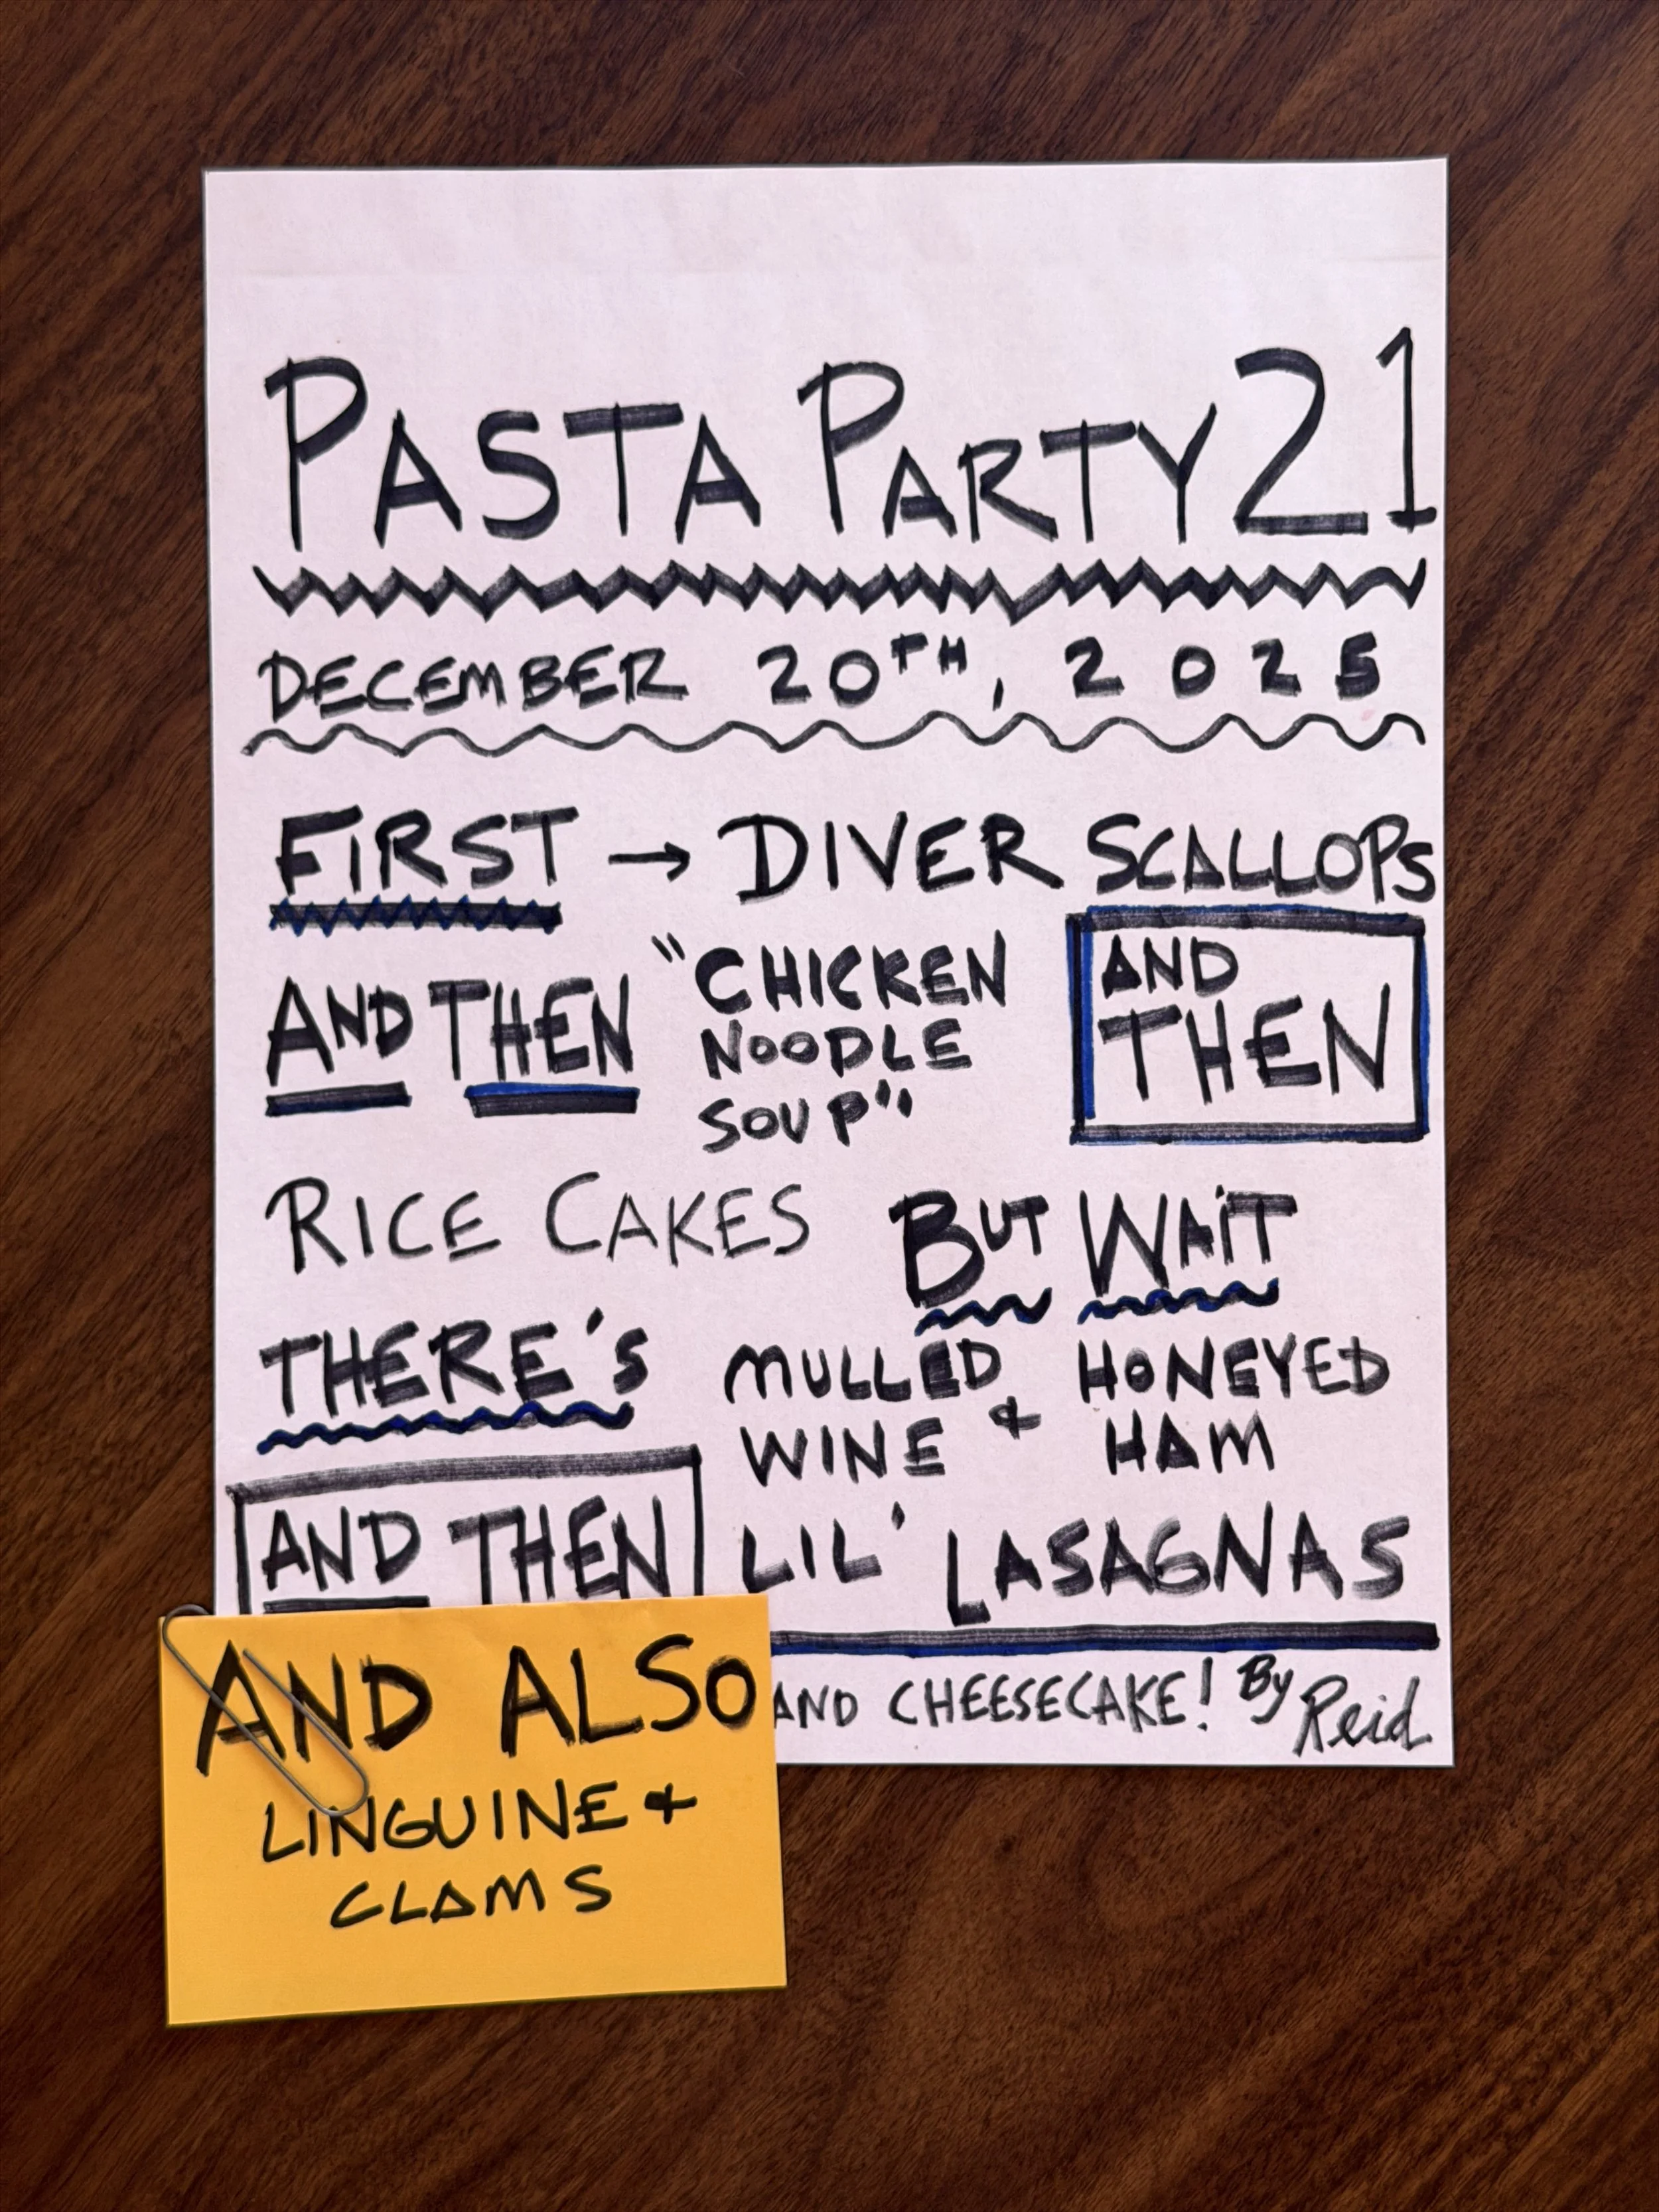 PASTA PARTY 21
DECEMBER 20TH, 2025
FIRST → DIVER SCALLOPS
AND THEN
"CHICKEN
NOODLE
SOUP"
AND
THEN
RICE CAKES
BUT WAIT
THERE'S
MULLED
WINE
&
HONEYED
HAM
AND THEN
LIL' LASAGNAS
AND CHEESECAKE! By Reid
AND ALSO
LINGUINE &
CLAMS